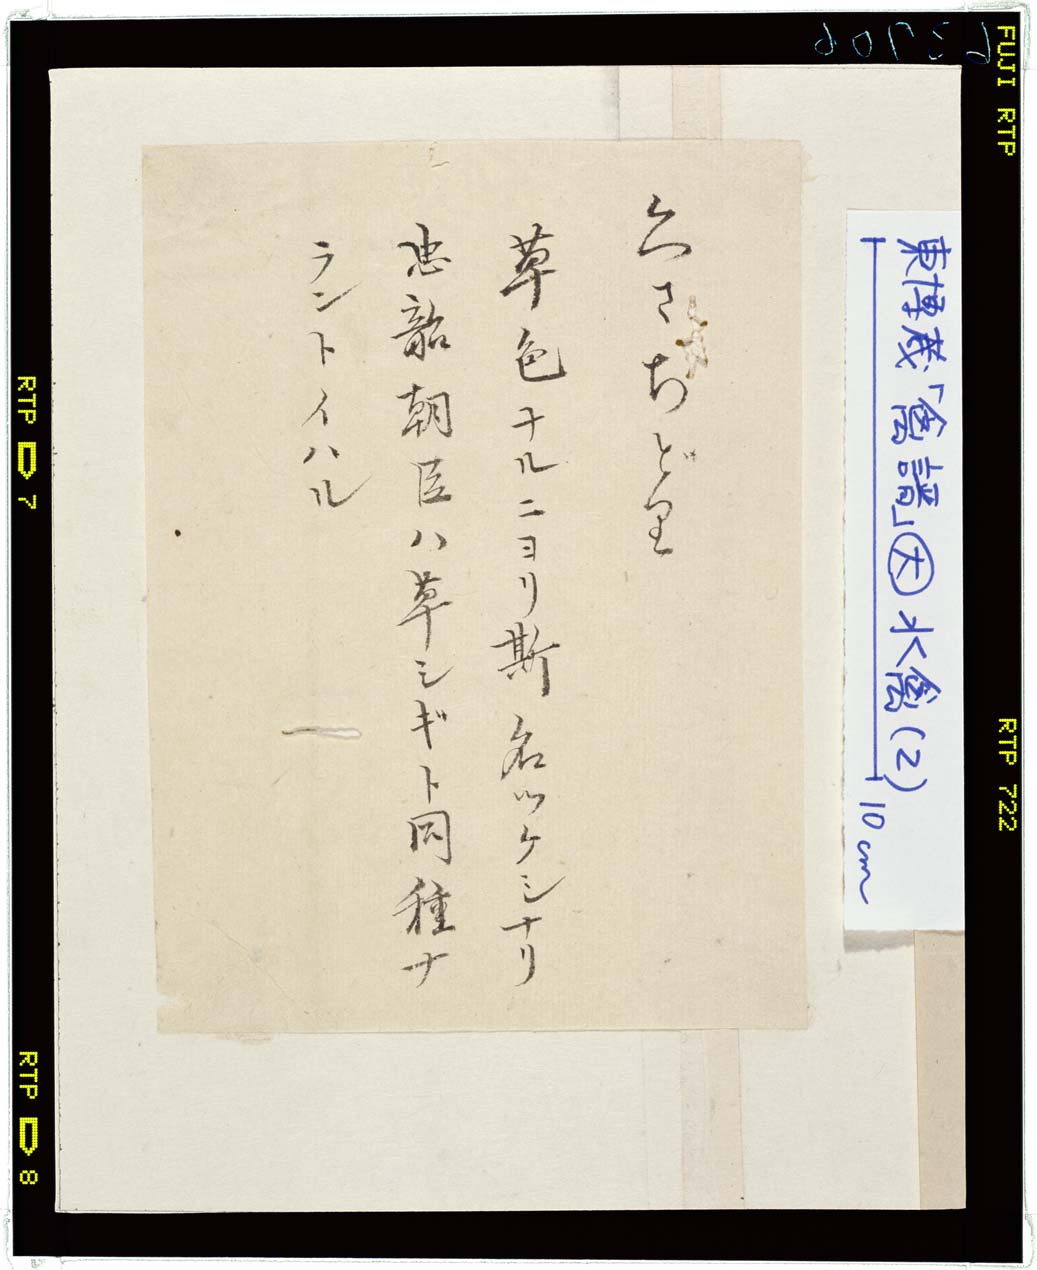 くさちどり
草色ナルニヨリ斯名ツケシナリ
忠韶朝臣ハ草シギト同種ナ
ラントイハル
東博蔵「禽譜」大 水禽(2)
10cm
FUJI RTP
RTP 722
RTP 7
RTP 8